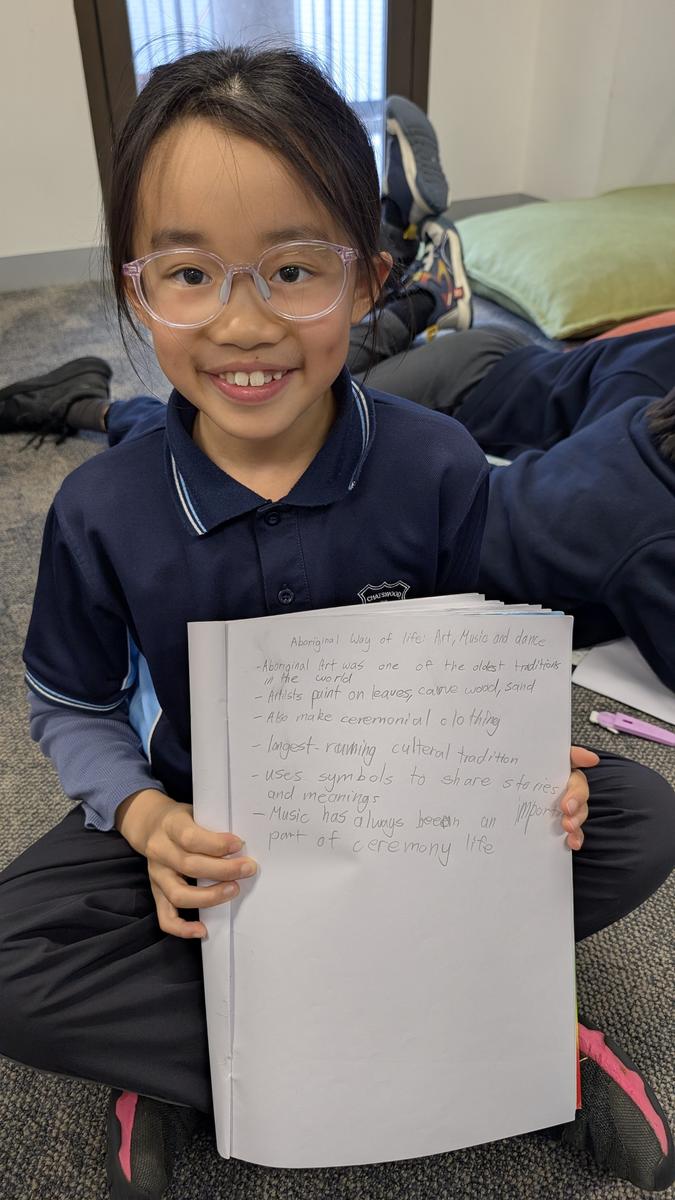 CHATSWOOD
Aboriginal Way of life: Art, Music and dance
- Aboriginal Art was one of the oldest traditions
in the world
- Artists paint on leaves, carve wood, sand
- Also make ceremonial clothing
- longest-running cultural tradition
- uses symbols to share stories
and meanings
- Music has always been an importn
part of ceremony life